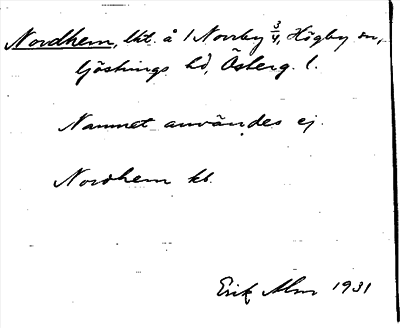 Nordhem, lht. å 1 Norrby 3/4, Högby sn,
Göstrings hd, Österg. l.
Namnet användes ej.
Nordhem kb.
Erik Alm 1931